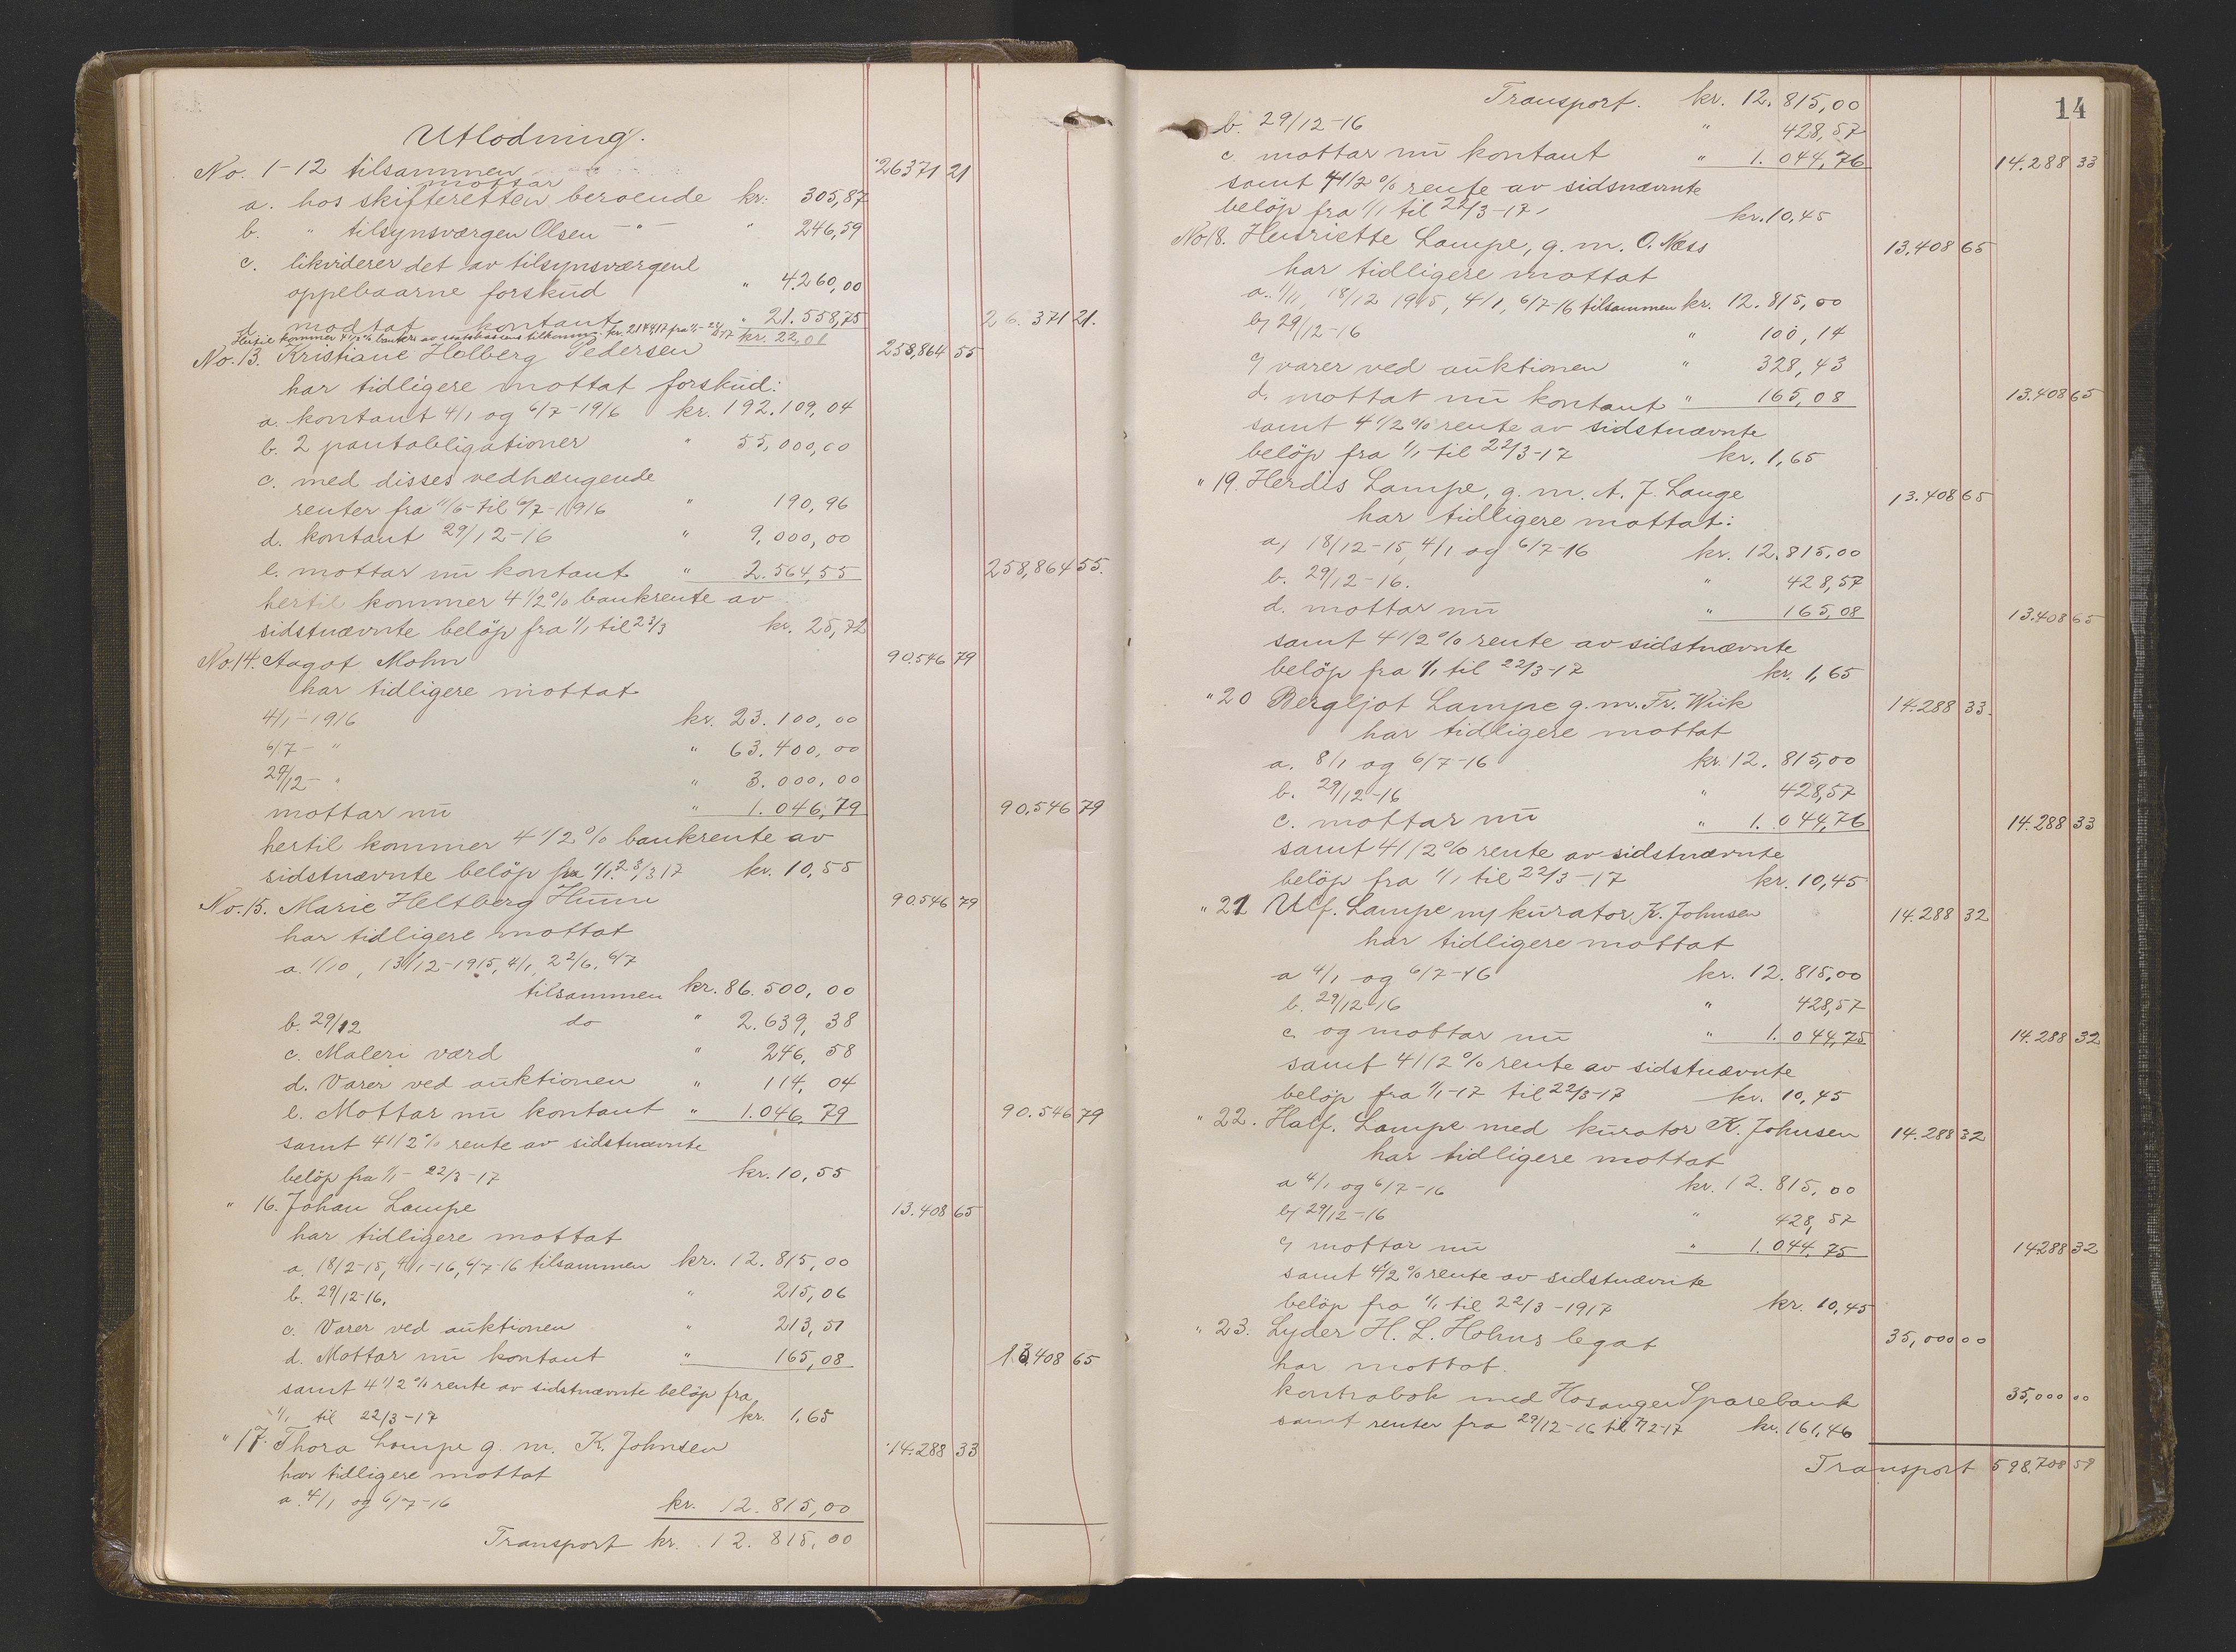 Utlodning.
No. 1-12 tilsammen 26371 21
mottar
a. hos skifteretten beroende kr. 305,87
b. " tilsynsværgen Olsen - " - " 246,59
c. likviderer det av tilsynsværgen
oppebaarne forskud " 4.260,00
d. modtat kontant " 21.558,75 26.371 21.
Hertil kommer 4 1/2 % bankr. av kr. 217417 fra 1/1 - 22/3 17 kr. 22,01
No. 13. Kristiane Holberg Pedersen 258,864 55
har tidligere mottat forskud:
a. kontant 4/1 og 6/7-1916 kr. 192.109,04
b. 2 pantobligationer " 55,000,00
c. med disses vedhængende
renter fra 11/6 til 6/7-1916 " 190,96
d. kontant 29/12-16 " 9,000,00
e. mottar nu kontant " 2.564,55 258,864 55.
hertil kommer 4 1/2 % bankrente av
sidstnævnte beløp fra 1/1 til 23/3 kr. 25,72
No. 14. Aagot Mohn 90.546 79
har tidligere mottat
4/1-1916 kr. 23.100,00
6/7- " " 63.400,00
29/12- " " 3.000,00
mottar nu " 1.046,79 90.546 79
hertil kommer 4 1/2 % bankrente av
sidstnævnte beløp fra 1/1 23/3 17 kr. 10,55
No. 15. Marie Heltberg Humm 90.546 79
har tidligere mottat
a. 1/10, 13/12-1915, 4/1, 22/6, 6/7
tilsammen kr. 86.500,00
b. 29/12 do " 2.639,38
c. Maleri værd " 246,58
d. Varer ved auktionen " 114,04
e. Mottar nu kontant " 1.046,79 90.546 79
samt 4 1/2 % rente av sidstnævnte
beløp fra 1/1 - 22/3-17 kr. 10,55
" 16. Johan Lampe 13.408 65
har tidligere mottat
a. 18/12-15, 4/1-16, 6/7-16 tilsammen kr. 12.815,00
b. 29/12-16. " 215,06
c. Varer ved auktionen " 213,51
d. Mottar nu kontant " 165,08 13.408 65
samt 4 1/2 % rente av sidstnævnte beløp fra
1/1 til 22/3-17 kr. 1.65
" 17. Thora Lampe g. m. K. Johnsen 14.288 33
har tidligere mottat
a. 4/1 og 6/7-16 kr. 12.815,00
Transport kr. 12.815,00
14
Transport. kr. 12.815,00
b. 29/12-16 " 428,57
c. mottar nu kontant " 1.044,76 14.288 33
samt 4 1/2 % rente av sidsnævnte
beløp fra 1/1 til 22/3-17 kr. 10,45
No 18. Henriette Lampe, g. m. O. Næss 13.408 65
har tidligere mottat
a. 1/11, 18/12 1915, 4/1, 6/7-16 tilsammen kr. 12.815,00
b) 29/12-16 " 100,14
c) varer ved auktionen " 328,43
d. mottat nu kontant " 165,08 13.408 65
samt 4 1/2 % rente av sidstnævnte
beløp fra 1/1 til 22/3-17 kr. 1,65
" 19. Herdis Lampe, g. m. A. J. Lange 13.408 65
har tidligere mottat:
a) 18/12-15, 4/1 og 6/7-16 kr. 12.815,00
b. 29/12-16. " 428,57
d. mottar nu " 165,08 13.408 65
samt 4 1/2 % rente av sidstnævnte
beløp fra 1/1 til 22/3-17 kr. 1,65
" 20 Bergljot Lampe g. m. Fr. Wiik 14.288 33.
har tidligere mottat
a. 8/1 og 6/7-16 kr. 12.815,00
b. 29/12-16 " 428,57
c. mottar nu " 1.044,76 14.288 33
samt 4 1/2 % rente av sidstnævnte
beløp fra 1/1 til 22/3-17 kr. 10,45
" 21 Ulf. Lampe m/ kurator K. Johnsen 14.288 32
har tidligere mottat
a 4/1 og 6/7-16 kr. 12.815,00
b. 29/12-16 " 428,57
c og mottar nu " 1.044,75 14.288 32
samt 4 1/2 % rente av sidstnævnte
beløp fra 1/1-17 til 22/3-17 kr. 10,45
" 22. Half. Lampe med kurator K. Johnsen 14.288 32
har tidligere mottat
a 4/1 og 6/7-16 kr. 12.815,00
b) 29/12-16 " 428,57
c) mottar nu " 1.044,75 14288 32
samt 4 1/2 % rente av sidstnævnte
beløp fra 1/1 til 22/3-1917 kr. 10,45
" 23. Lyder H. L. Holms legat 35,000 00
har mottat.
kontrabok med Hosanger Sparebank 35,000 00
samt renter fra 29/12-16 til 7/2-17 kr. 161,46
Transport 598.708 59